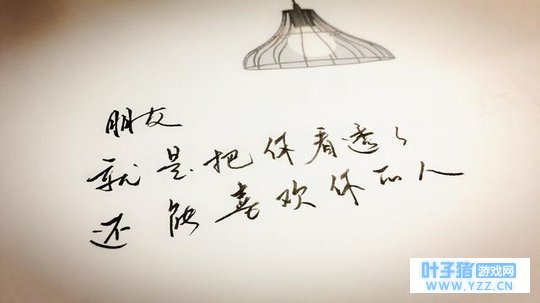 朋友
就是把你看透了
还能喜欢你的人
叶子猪游戏网
WWW.YZZ.CN